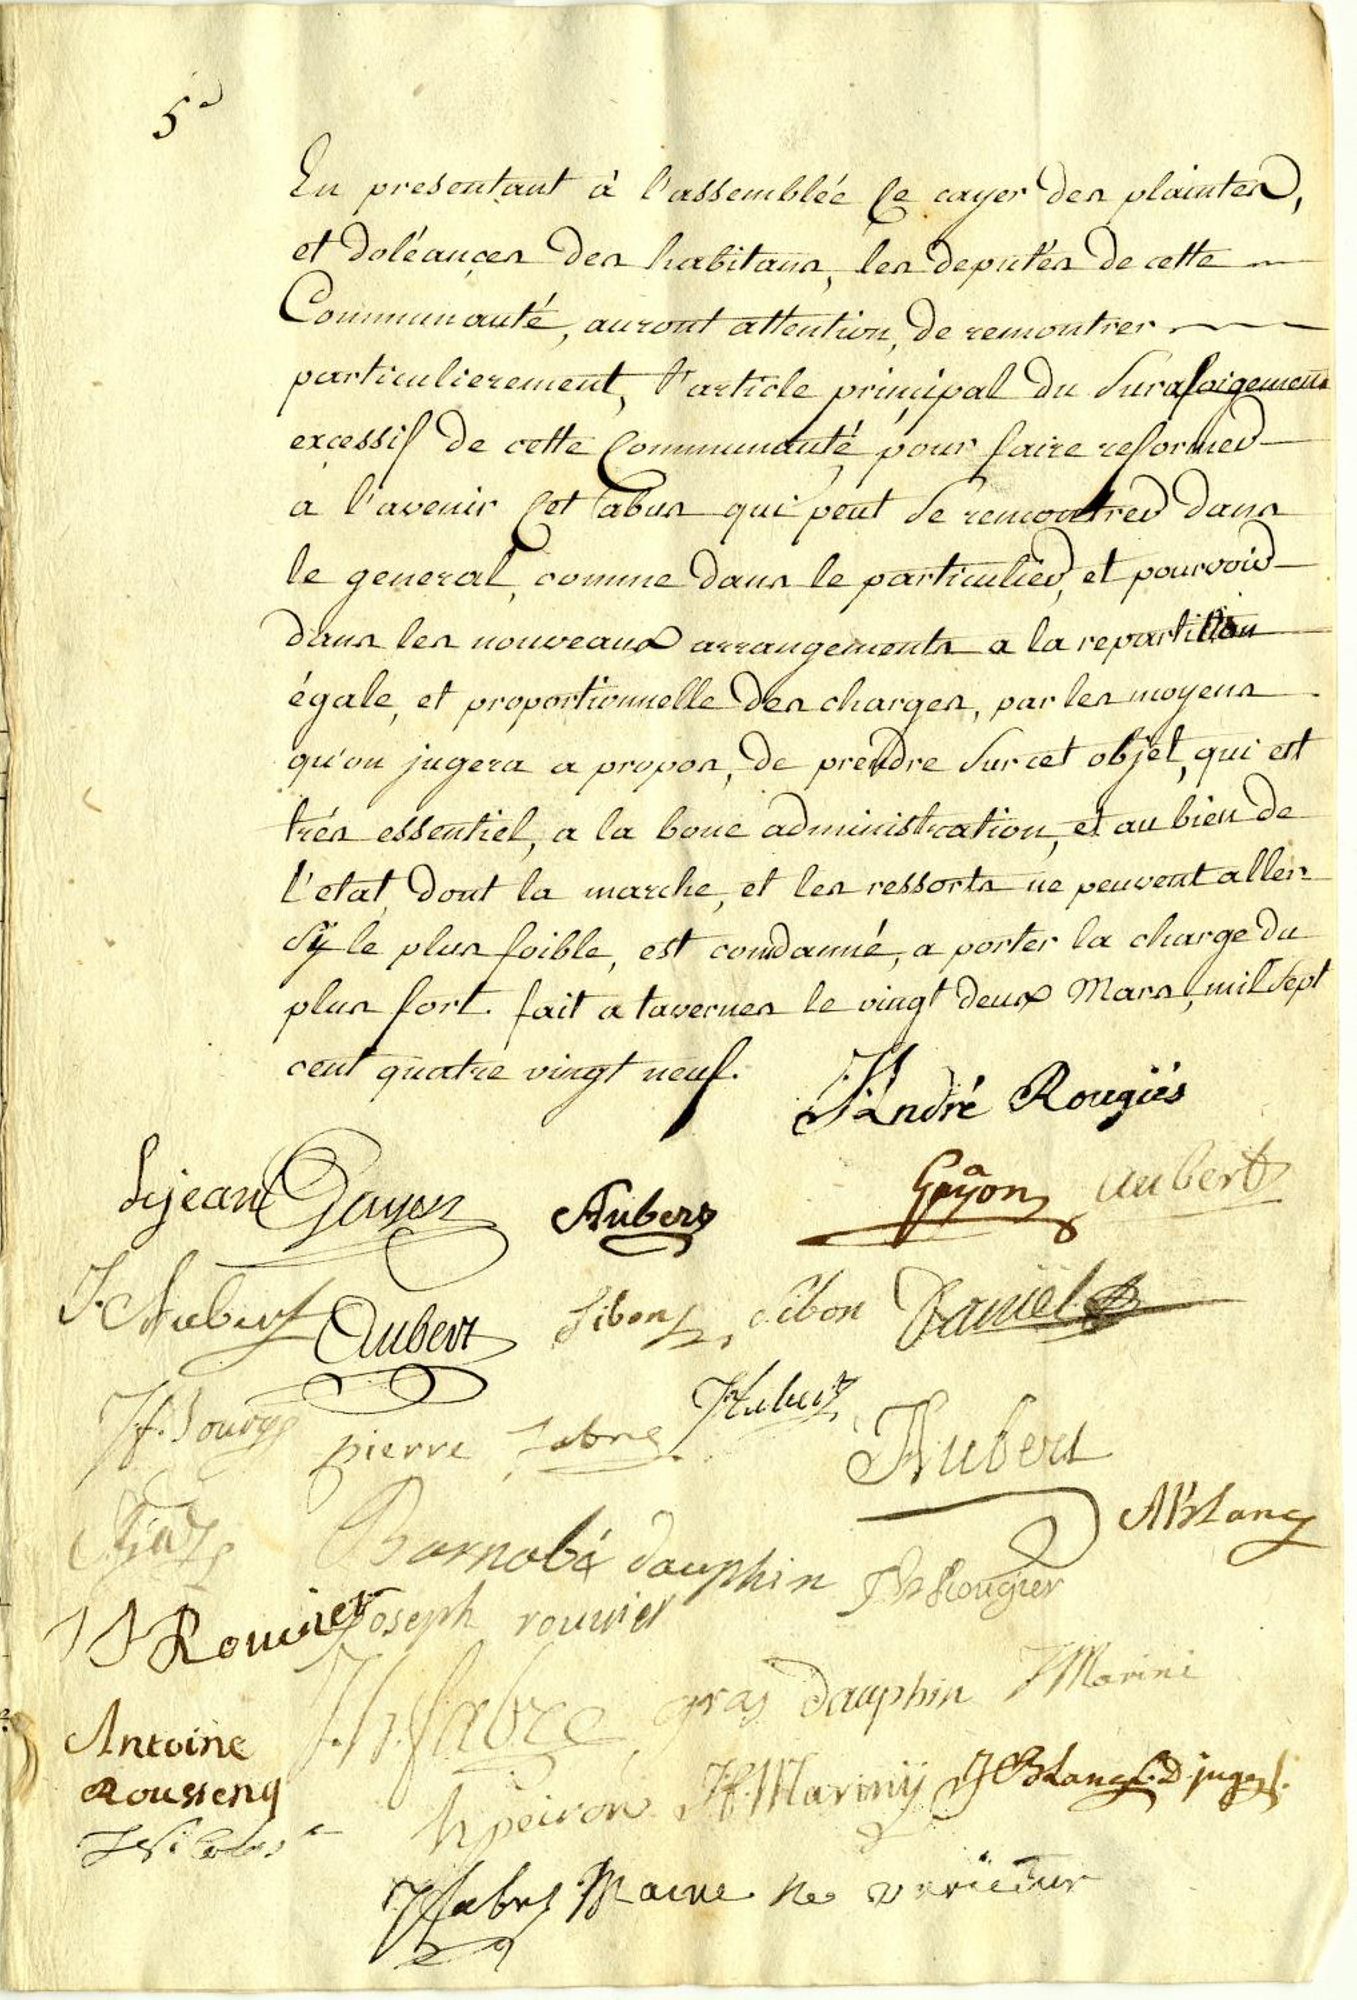 5e
En presentant à l'assemblée le cayer des plaintes,
et doléances des habitans, les députés de cette
Communauté, auront attention, de remontrer
particulierement, l'article principal du suraf
excessif de cette Communauté, pour faire reformer
a l'avenir Cet abus qui peut se remontrer dans
le general, comme dans le particulier, et pourvoir
dans les nouveaux arrangements a la repartition
égale, et proportionnelle des charges, par les moyens
qu'on jugera a propos, de prendre sur cet objet, qui est
trés essentiel, a la bone administration, et au bien de
l'etat, dont la marche, et les ressorts ne peuvent aller
sy le plus foible, est comdanné, a porter la charge du
plus fort. fait a tavernes le vingt deux Mars, mil sept
cent quatre vingt neuf.
André Rougiés
Lejean Gayon Aubert Gayon aubert
J. Aubert Aubert Sibon Sibon Daniel
pierre fabre Aubert Aubert
ABlanc
Barnabé dauphin Rougier
Rouvier Joseph rouvier
fabre gras dauphin Marini
Antoine
Rousseng
h peiron Mariny Blanc
fabre Maire ne varietur